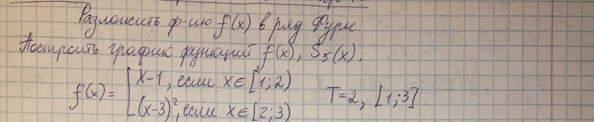 Разложить ф-ию f(x) в ряд Фурье.
Построить график функций f(x), S₅(x).
f(x) = [ x-1, если x ∈ [1; 2)
(x-3)², если x ∈ [2; 3)
T=2, [1; 3]